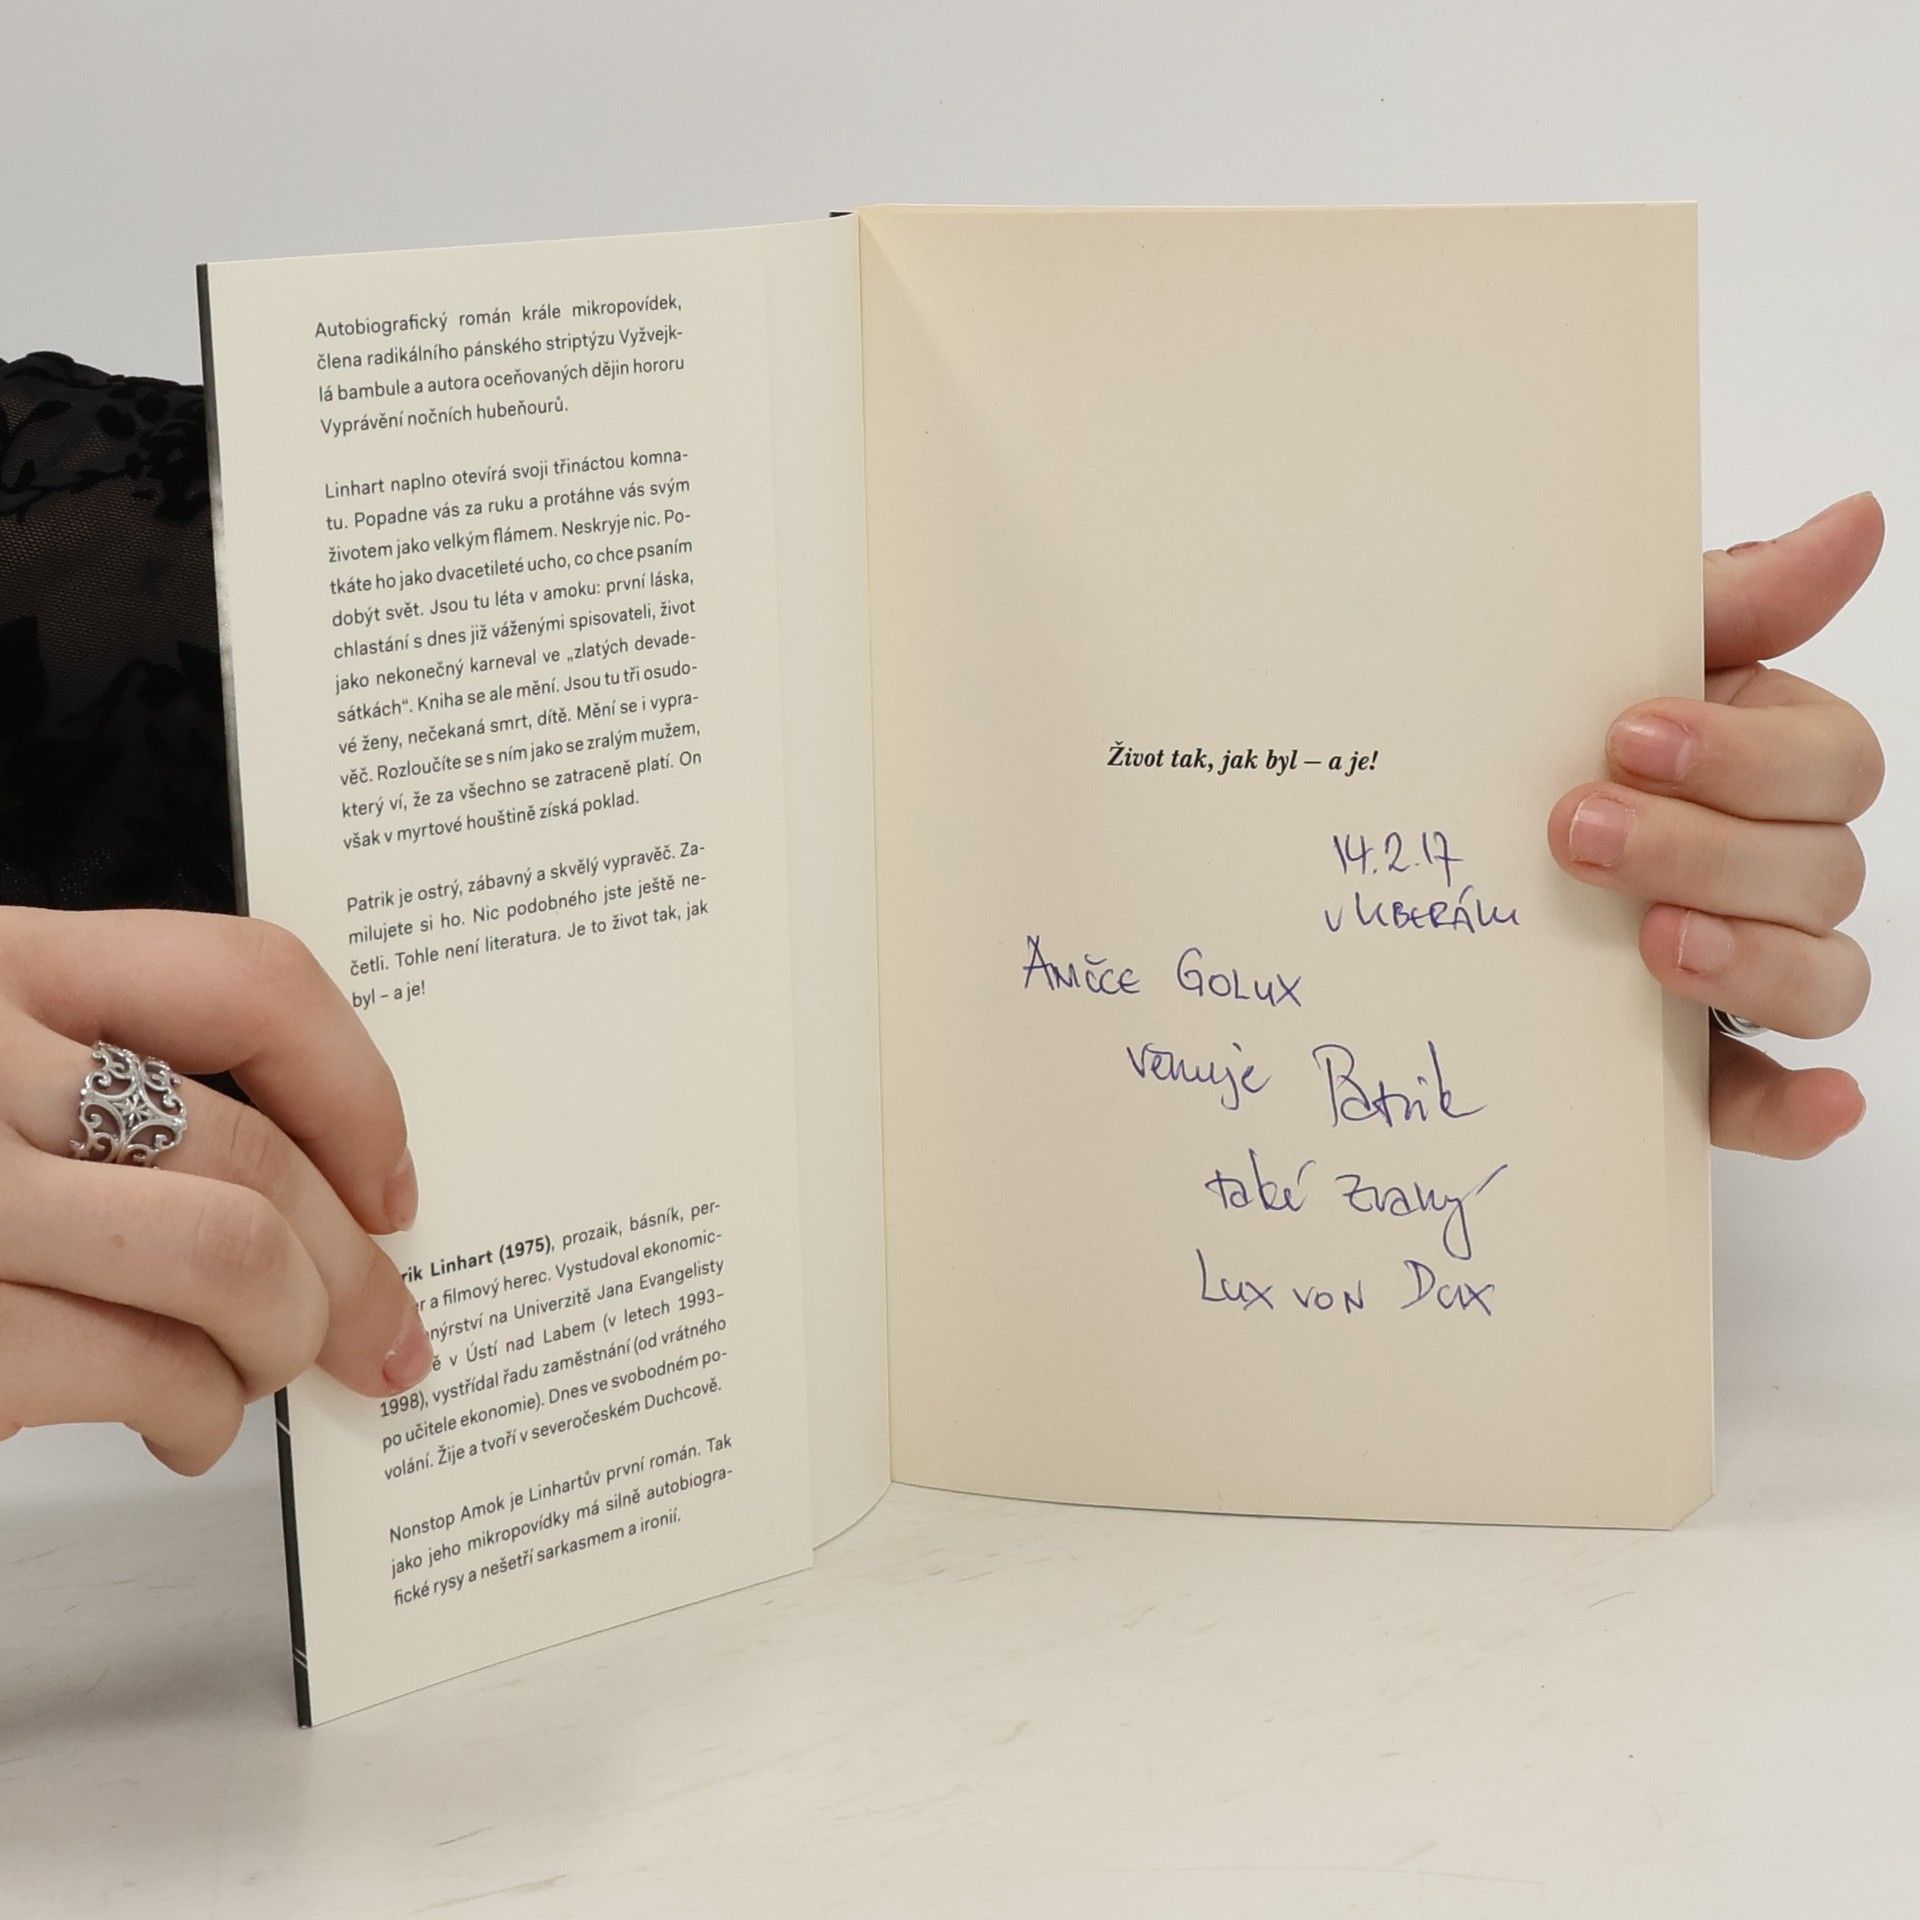 Autobiografický román krále mikropovídek,
člena radikálního pánského striptýzu Vyžvejk-
lá bambule a autora oceňovaných dějin hororu
Vyprávění nočních hubeňourů.
Linhart naplno otevírá svoji třináctou komna-
tu. Popadne vás za ruku a protáhne vás svým
životem jako velkým flámem. Neskryje nic. Po-
tkáte ho jako dvacetileté ucho, co chce psaním
dobýt svět. Jsou tu léta v amoku: první láska,
chlastání s dnes již váženými spisovateli, život
jako nekonečný karneval ve „zlatých devade-
sátkách“. Kniha se ale mění. Jsou tu tři osudo-
vé ženy, nečekaná smrt, dítě. Mění se i vypra-
věč. Rozloučíte se s ním jako se zralým mužem,
který ví, že za všechno se zatraceně platí. On
však v myrtové houštině získá poklad.
Patrik je ostrý, zábavný a skvělý vypravěč. Za-
milujete si ho. Nic podobného jste ještě ne-
četli. Tohle není literatura. Je to život tak, jak
byl – a je!
rik Linhart (1975), prozaik, básník, per-
r a filmový herec. Vystudoval ekonomic-
nýrství na Univerzitě Jana Evangelisty
ě v Ústí nad Labem (v letech 1993–
1998), vystřídal řadu zaměstnání (od vrátného
po učitele ekonomie). Dnes ve svobodném po-
volání. Žije a tvoří v severočeském Duchcově.
Nonstop Amok je Linhartův první román. Tak
jako jeho mikropovídky má silně autobiogra-
fické rysy a nešetří sarkasmem a ironií.
Život tak, jak byl – a je!
14.2.17
v
Aničce Golux
věnuje Patrik
také zvaný
Lux von Dux